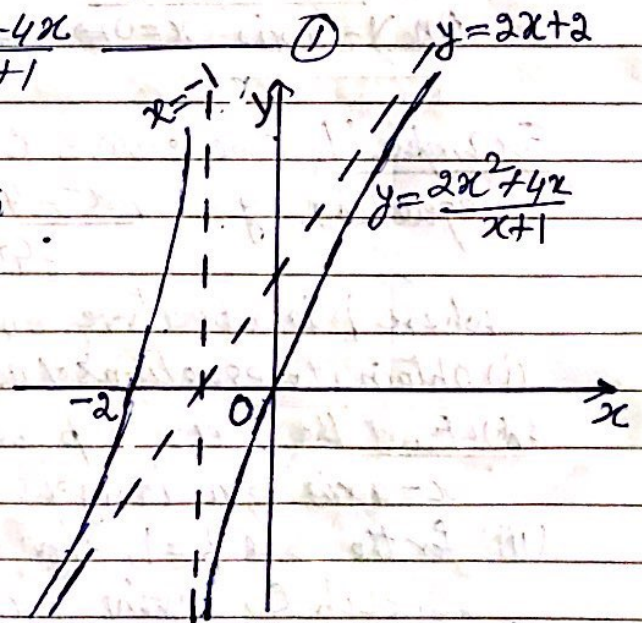 -4x ① y=2x+2
+1
x=-1 y
y=\frac{2x^2+4x}{x+1}
-2 0 x